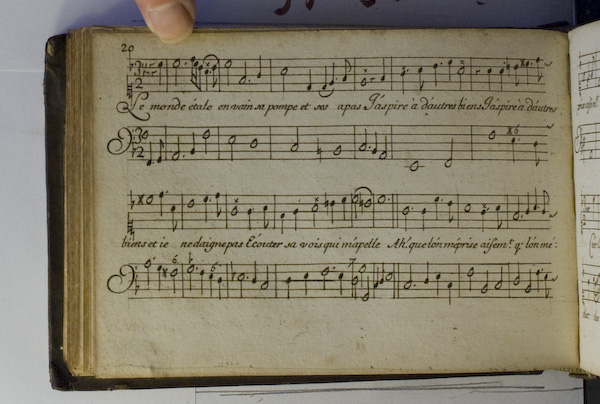 20
Le monde étale en vain sa pompe et ses apas J'aspire à d'autres biens J'aspire à d'autres
x6
biens et ie ne daigne pas Ecouter sa vois qui m'apelle Ah! que l'on méprise aisem.t q: l'on mé:
6 6 7